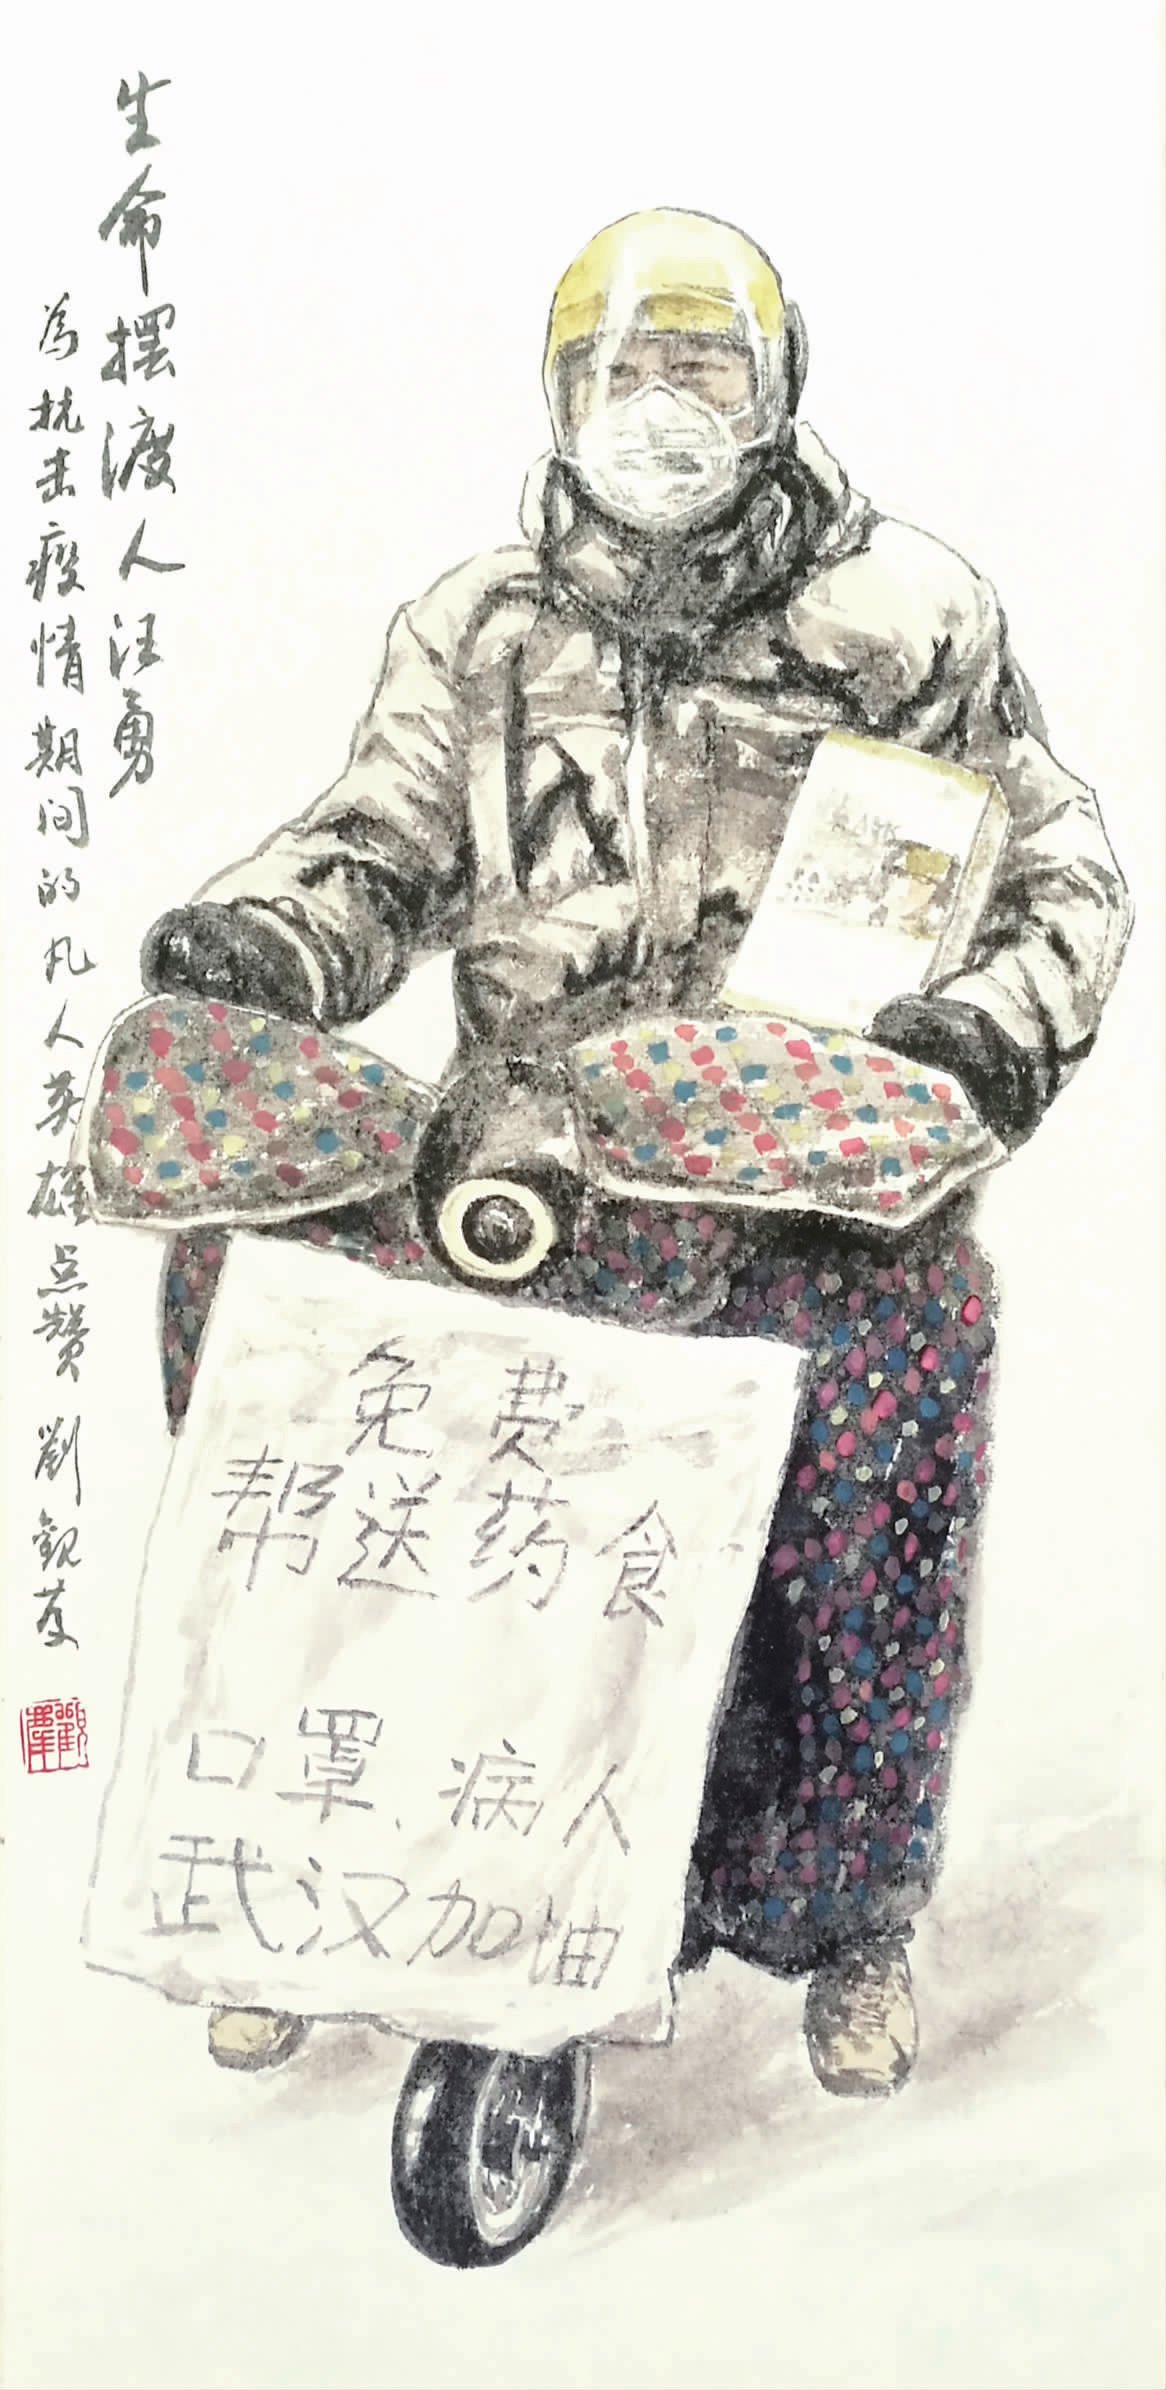 生命摆渡人汪勇
为抗击疫情期间的凡人英雄点赞 刘观庆
免费
帮送药食
口罩、病人
武汉加油